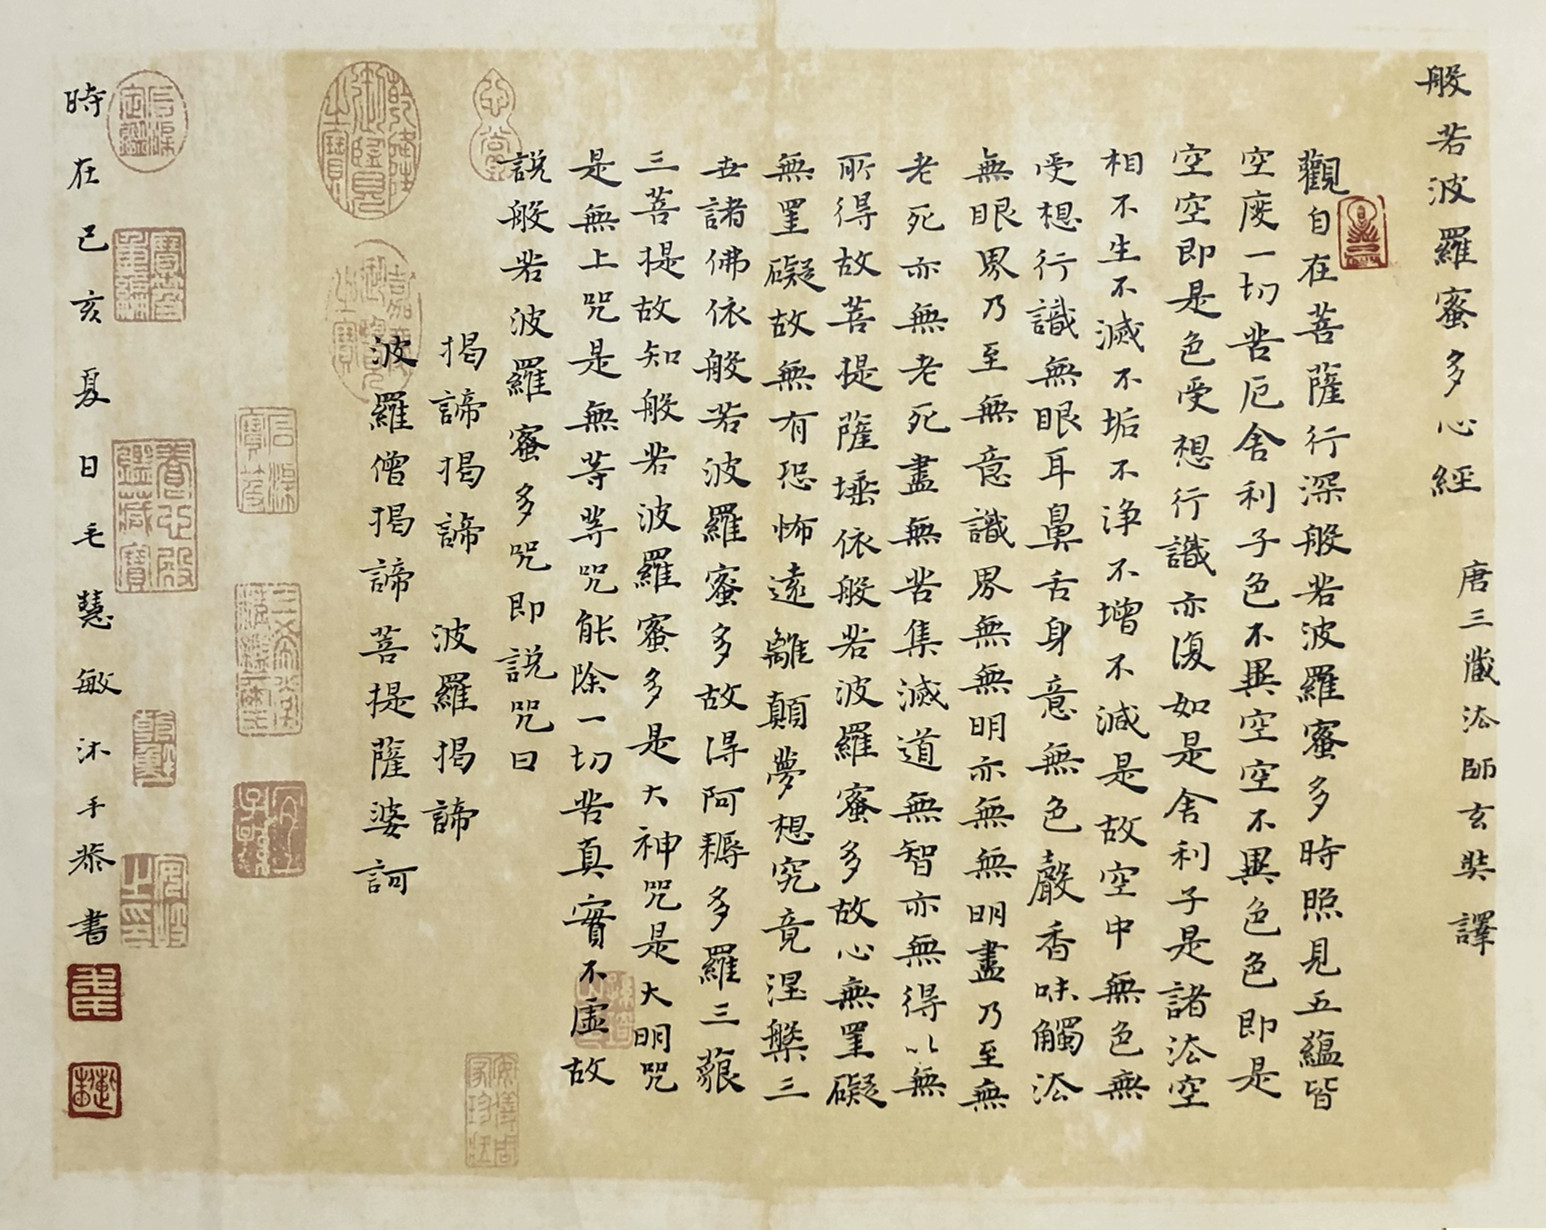 般若波羅蜜多心經 唐三藏法師玄奘譯
觀自在菩薩行深般若波羅蜜多時照見五蘊皆
空度一切苦厄舍利子色不異空空不異色色即是
空空即是色受想行識亦復如是舍利子是諸法空
相不生不滅不垢不淨不增不減是故空中無色無
受想行識無眼耳鼻舌身意無色聲香味觸法
無眼界乃至無意識界無無明亦無無明盡乃至無
老死亦無老死盡無苦集滅道無智亦無得以無
所得故菩提薩埵依般若波羅蜜多故心無罣礙
無罣礙故無有恐怖遠離顛夢想究竟涅槃三
世諸佛依般若波羅蜜多故得阿耨多羅三藐
三菩提故知般若波羅蜜多是大神咒是大明咒
是無上咒是無等等咒能除一切苦真實不虛故
說般若波羅蜜多咒即說咒曰
揭諦揭諦 波羅揭諦
波羅僧揭諦菩提薩婆訶
乾隆御覽之寶
嘉慶御覽之寶
石渠寶笈
三希堂精鑑璽
宜子孫
石渠定鑑
寶笈重編
養心殿鑑藏寶
時在己亥夏日毛慧敏沐手恭書
毛氏